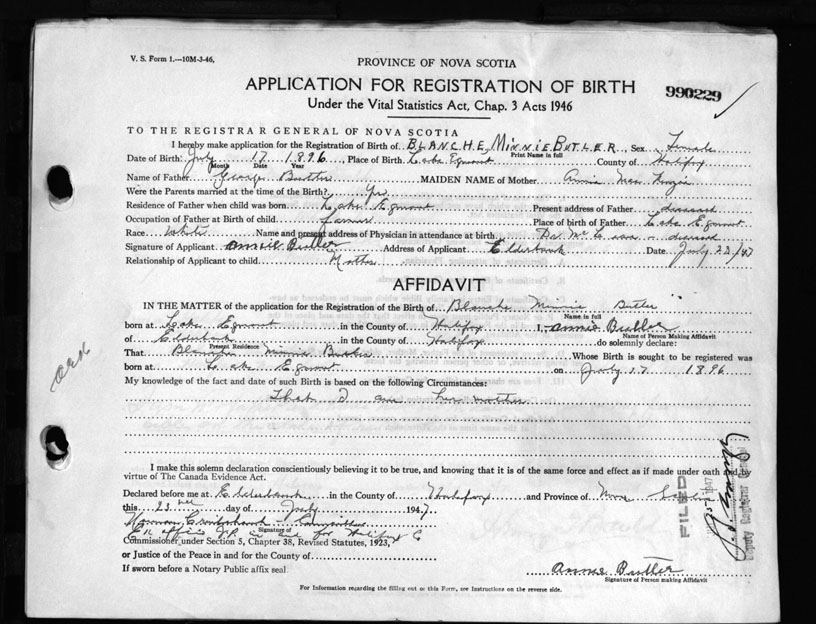 V. S. Form 1.—10M-3-46.
PROVINCE OF NOVA SCOTIA
APPLICATION FOR REGISTRATION OF BIRTH
990229
Under the Vital Statistics Act, Chap. 3 Acts 1946
TO THE REGISTRAR GENERAL OF NOVA SCOTIA
I hereby make application for the Registration of Birth of BLANCHE MINNIE BUTLER, Sex Female
Print Name in full
Date of Birth: July 17 1896, Place of Birth Lake Egmont County of Halifax
Month Date Year
Name of Father George Butler MAIDEN NAME of Mother Annie
Were the Parents married at the time of the Birth? Yes
Residence of Father when child was born Lake Egmont Present address of Father deceased
Occupation of Father at Birth of child farmer Place of birth of Father Lake Egmont
Race White Name and present address of Physician in attendance at birth Dr. deceased
Signature of Applicant Annie Butler Address of Applicant Elderbank Date July 23/47
Relationship of Applicant to child Mother
AFFIDAVIT
IN THE MATTER of the application for the Registration of the Birth of Blanche Minnie Butler
Name in full
born at Lake Egmont in the County of Halifax I, Annie Butler
Name of Person Making Affidavit
of Elderbank in the County of Halifax do solemnly declare:
Present Residence
That Blanche Minnie Butler Whose Birth is sought to be registered was
born at Lake Egmont on July 17 1896
My knowledge of the fact and date of such Birth is based on the following Circumstances:
That I am her mother
I make this solemn declaration conscientiously believing it to be true, and knowing that it is of the same force and effect as if made under oath and by
virtue of The Canada Evidence Act.
Declared before me at Elderbank in the County of Halifax and Province of Nova Scotia
this 23 day of July 1947
Signature of
Commissioner under Section 5, Chapter 38, Revised Statutes, 1923,
or Justice of the Peace in and for the County of
If sworn before a Notary Public affix seal.
Annie Butler
Signature of Person making Affidavit
For Information regarding the filling out of this Form, see Instructions on the reverse side.
FILED
Deputy Registrar General